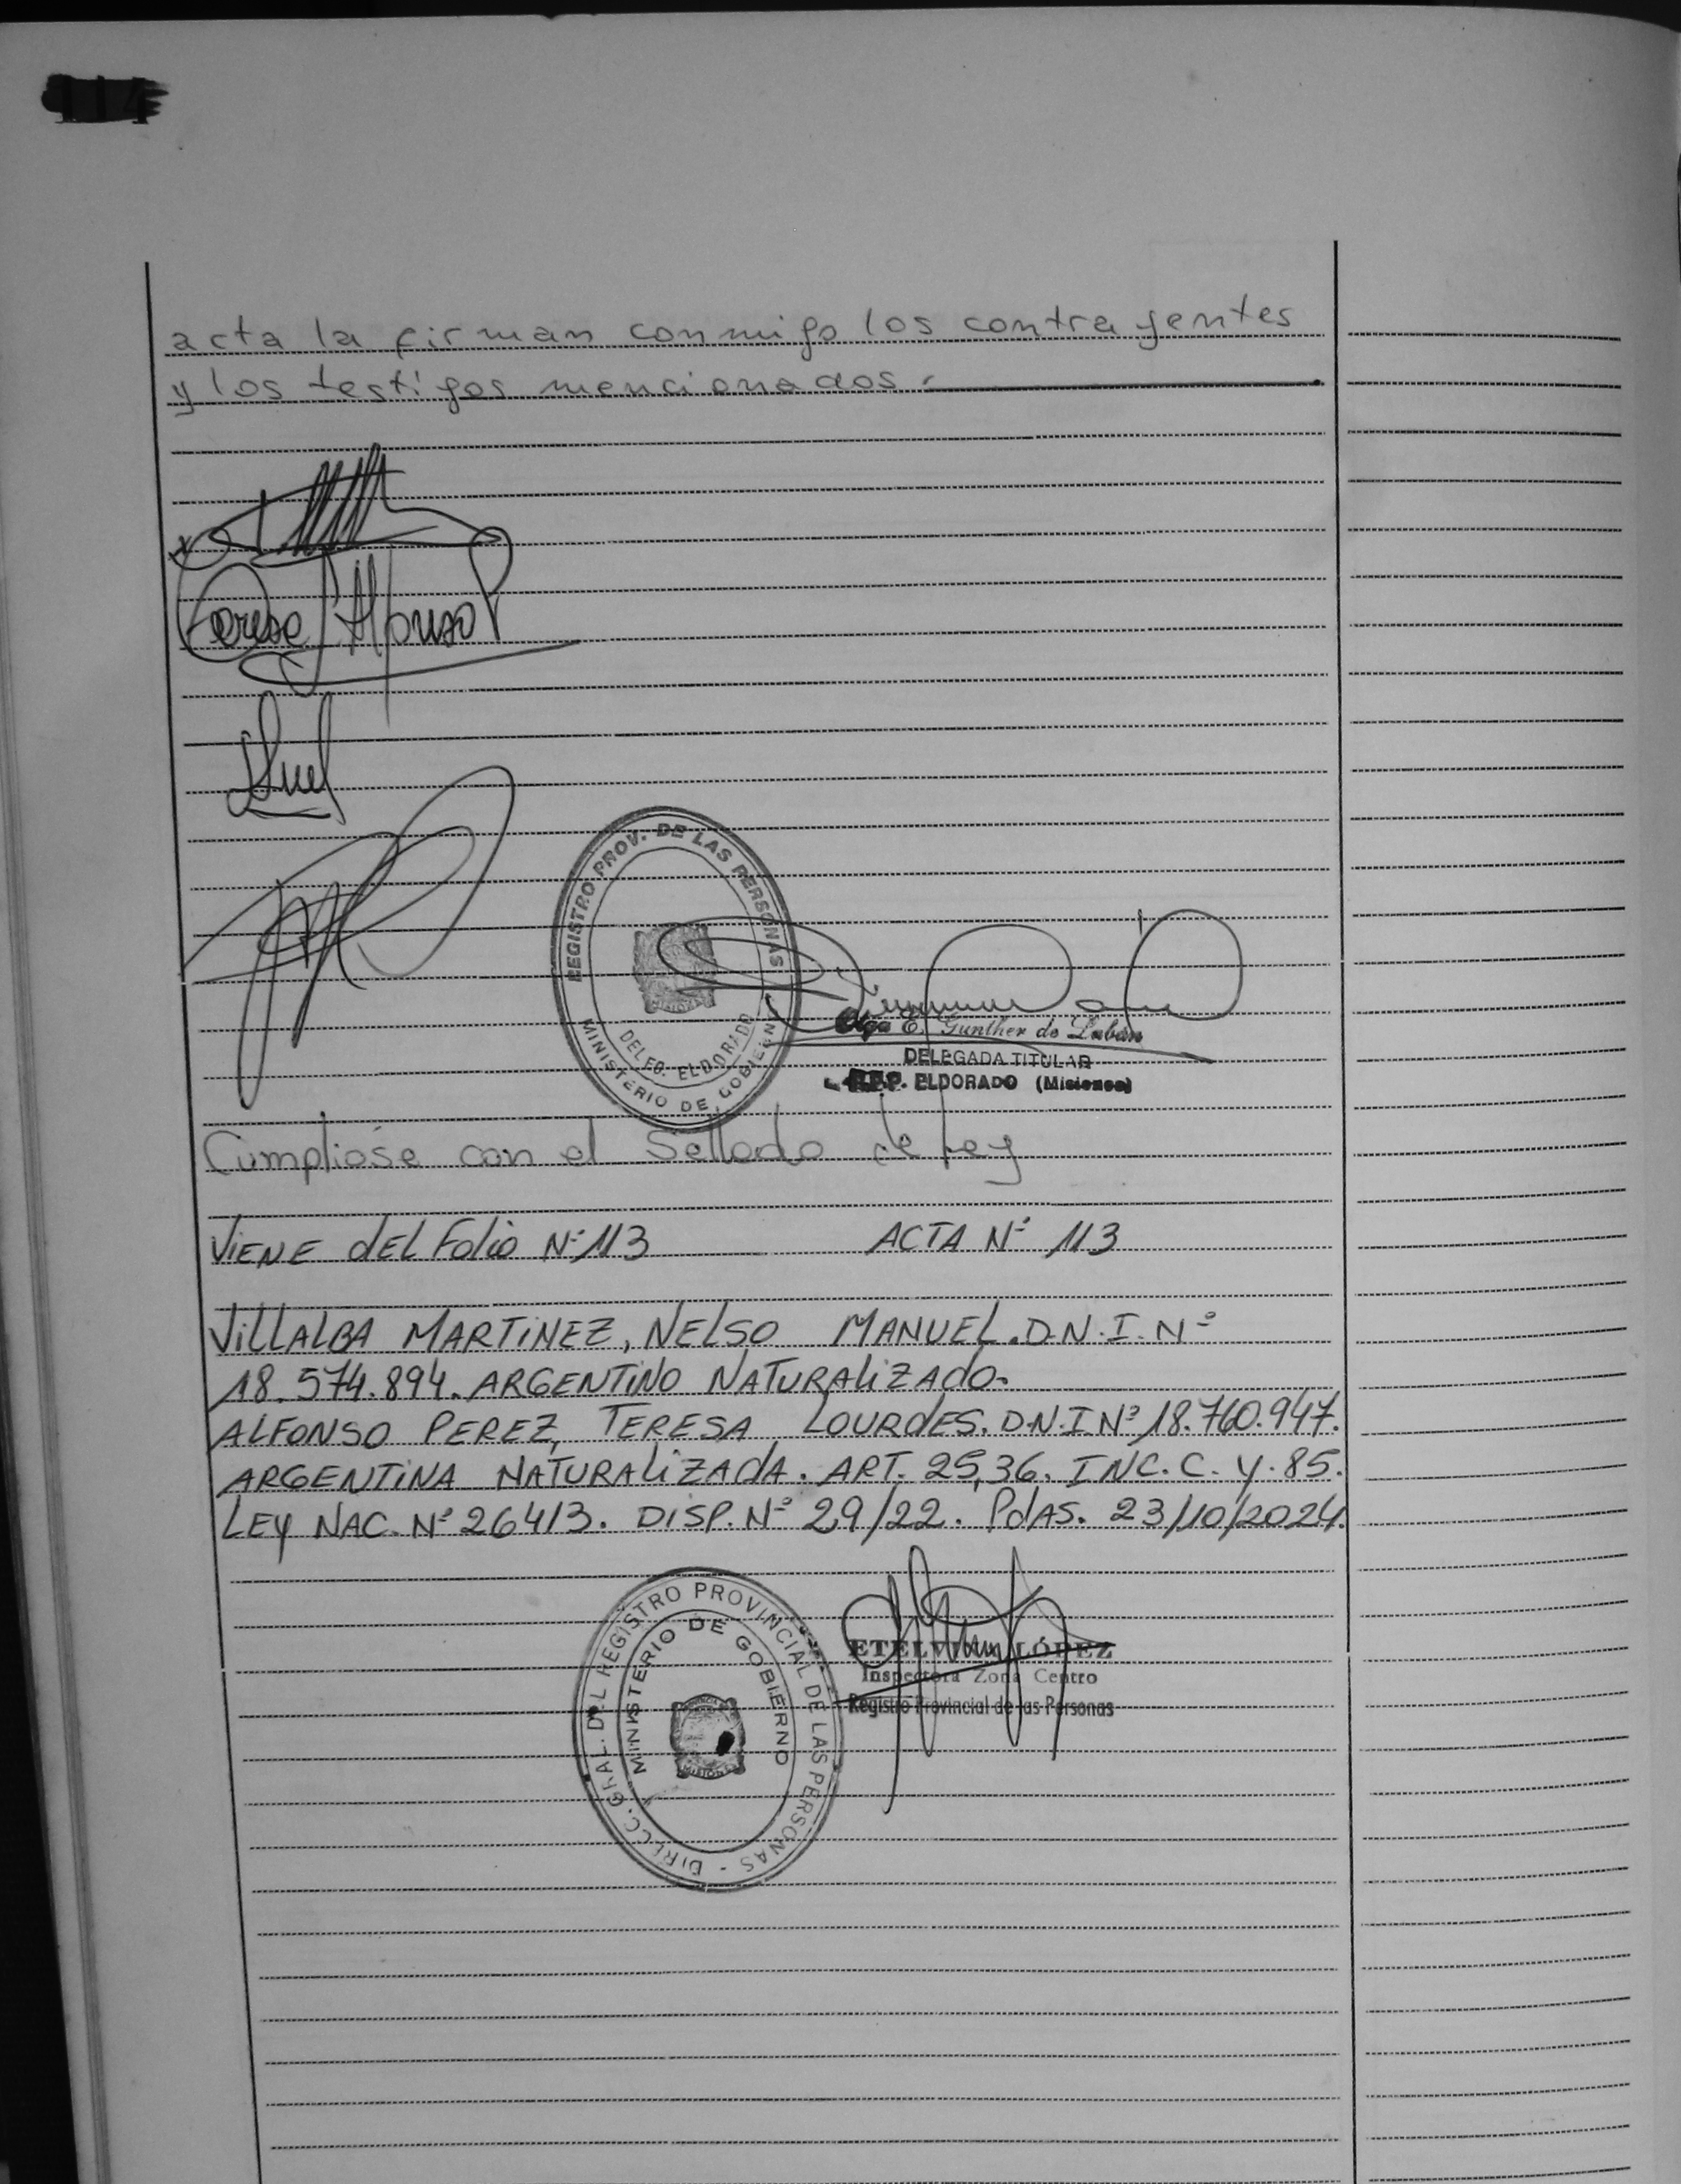 114
acta la firman conmigo los contrayentes
y los testigos mencionados.
Teresa Alfonso
REGISTRO PROV. DE LAS PERSONAS
MINISTERIO DE GOBIERNO
DELEG. ELDORADO
MISIONES
Olga E. Gunther de Labán
DELEGADA TITULAR
R.P.P. ELDORADO (Misiones)
Cumplióse con el Sellado de Ley
ViENE dEL Folio Nº 113 ACTA Nº 113
VillALBA MARTiNEZ, NELSO MANUEL. D.N.I. Nº
18.574.894. ARGENTiNO NATURALiZAdO.
ALFONSO PEREZ, TERESA LOURdES. D.N.I Nº 18.760.947.
ARGENTiNA NATURALiZAdA. ART. 25,36. INC. C. Y. 85.
LEY NAC. Nº 26413. DISP. Nº 29/22. PdAS. 23/10/2024.
DIRECC. GRAL. DEL REGISTRO PROVINCIAL DE LAS PERSONAS -
MINISTERIO DE GOBIERNO
MISIONES
ETELVINA LÓPEZ
Inspectora Zona Centro
Registro Provincial de las Personas